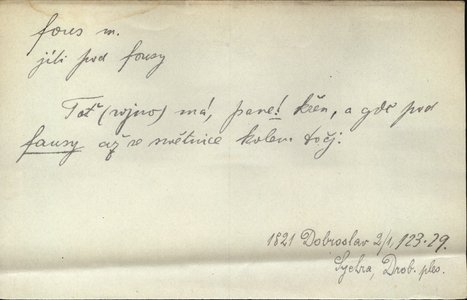 fous m.
jíti pod fousy
Totě (wjno) má, pane! křén, a gde pod
fausy až se swětnice kolem točj.
1821 Dobroslav 2/1, 123-29.
Sychra, Drob. ples.